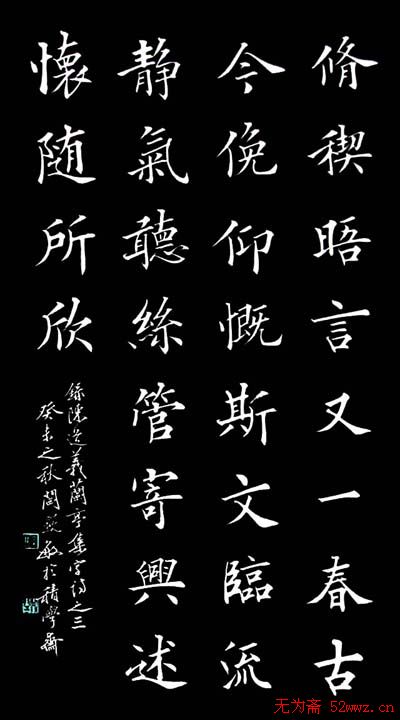 脩稧晤言又一春古
今俛仰慨斯文臨流
静氣聽絲管寄興述
懷随所欣
録陳義蘭亭集字詩之三
癸未之秋於積學齋
无为斋 52wwz.cn